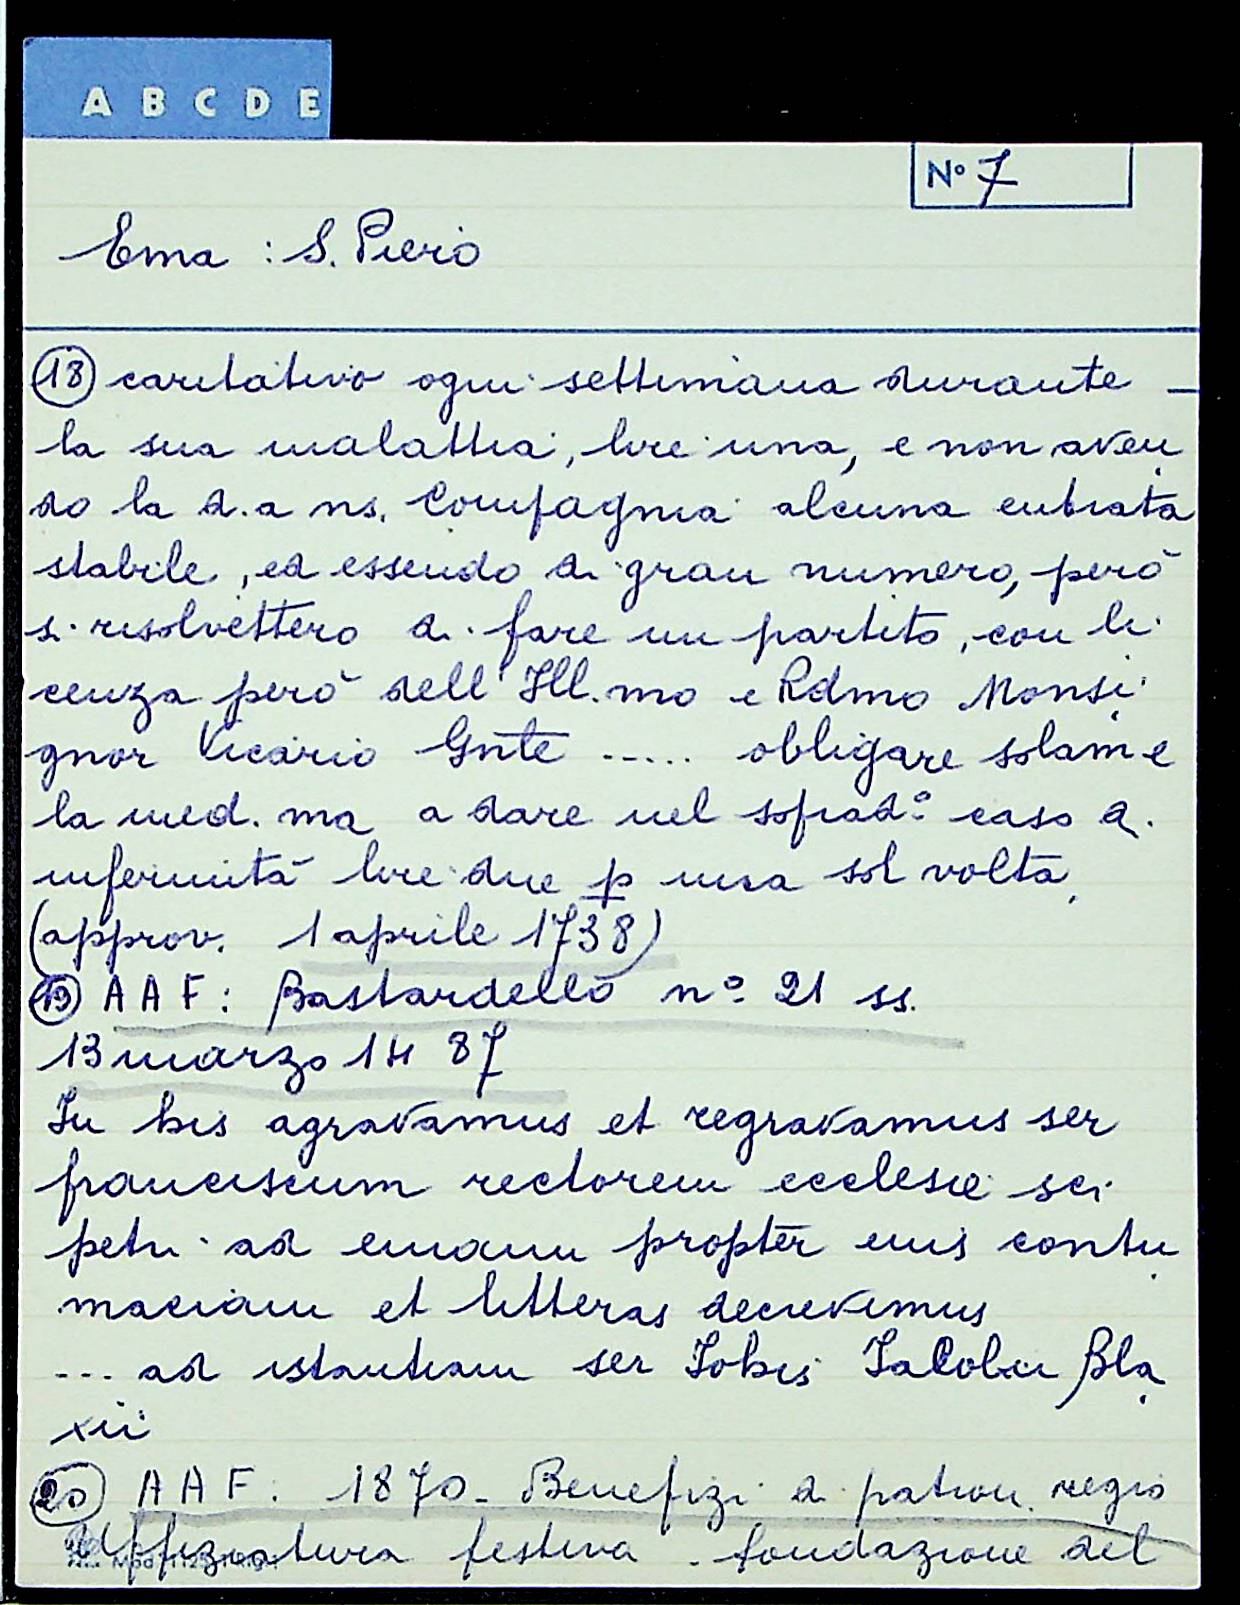 A B C D E
Nº 7
Ema : S. Piero
18 caritativo ogni settimana durante –
la sua malattia, lire una, e non aven
do la d.a ns. Compagnia alcuna entrata
stabile, ed essendo di gran numero, però
si risolvettero di fare un partito, con li
cenza però dell' Ill.mo e Rdmo Monsi
gnor Vicario Gnte ..... obligare solam e
la med. ma a dare nel soprad.º caso d.
infermità lire due p una sol volta.
(approv. 1 aprile 1738)
19 A A F : Bastardello nº 21 ss.
13 marzo 14 87
In his agravamus et regravamus ser
franciscum rectorem ecclesie sci
petri ad emam propter eius contu
maciam et litteras decrevimus
... ad istantiam ser Iohis Iacobi Bla
xii
20 A A F : 1870 - Benefizi di patron. regio
Uffiziatura festiva - fondazione del